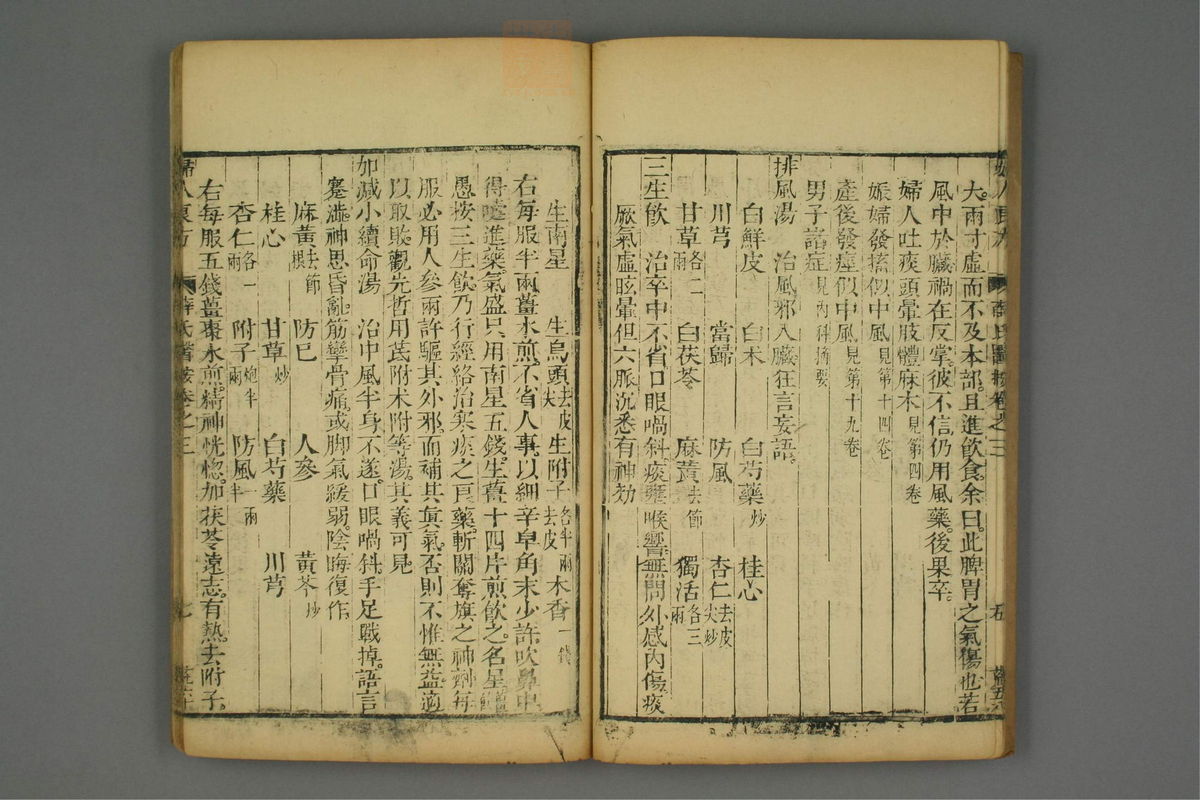 大而寸虛而不及本部且進飲食余曰此脾胃之氣傷也若
風中於臟禍在反掌彼不信仍用風藥後果卒
婦人吐痰頭暈肢體麻木見第四卷
娠婦發搐似中風見第十四卷
產後發痙似中風見第十九卷
男子諸症見內科摘要
排風湯 治風邪入臟狂言妄語
白鮮皮 白朮 白芍藥炒 桂心
川芎 當歸 防風 杏仁去皮尖炒
甘草各二兩 白茯苓 麻黃去節 獨活各三兩
三生飲 治卒中不省口眼喎斜痰壅喉響無問外感內傷痰
厥氣虛眩暈但六脈沉悉有神効
生南星 生烏頭去皮尖 生附子去皮各半兩 木香一錢
右每服半兩薑水煎不省人事以細辛皁角末少許吹鼻中
得嚏進藥氣盛只用南星五錢生薑十四片煎飲之名星香飲
愚按三生飲乃行經絡治寒痰之良藥斬關奪旗之神劑每
服必用人參兩許驅其外邪而補其眞氣否則不惟無益適
以取敗觀先哲用芪附朮附等湯其義可見
加減小續命湯 治中風半身不遂口眼喎斜手足戰掉語言
蹇澁神思昏亂筋攣骨痛或脚氣緩弱陰晦復作
麻黃去節根 防巳 人參 黃芩炒
桂心 甘草炒 白芍藥 川芎
杏仁各一兩 附子炮半兩 防風一兩半
右每服五錢薑棗水煎精神恍惚加茯苓遠志有熱去附子
婦人良方 薛氏醫按卷之三 七